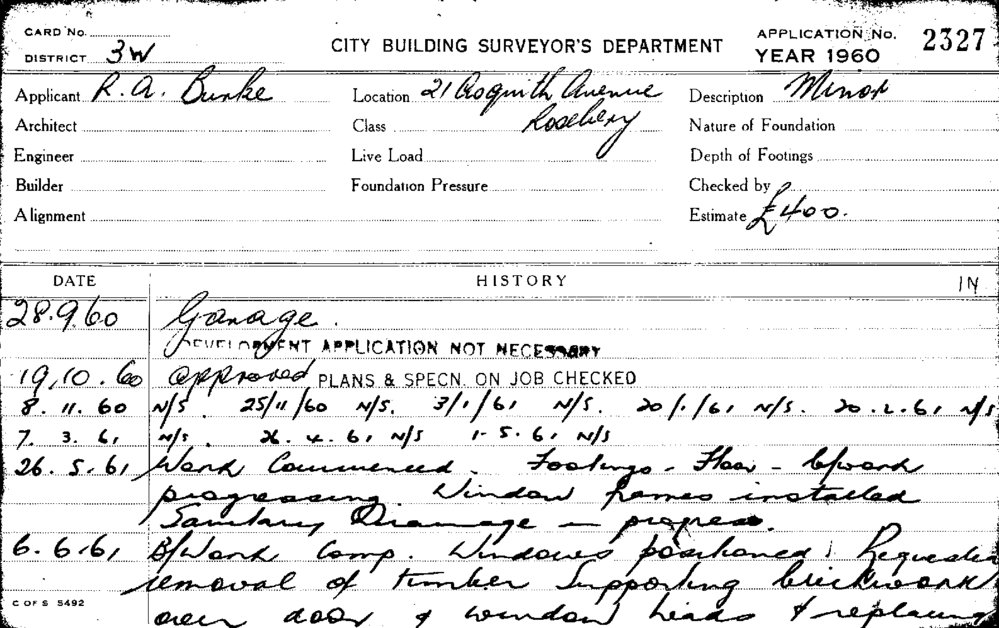 CARD No.
DISTRICT 3W
CITY BUILDING SURVEYOR'S DEPARTMENT
APPLICATION No. 2327
YEAR 1960
Applicant R. A. Burke Location 21 Asquith Avenue Description Minor
Architect Class Rosebery Nature of Foundation
Engineer Live Load Depth of Footings
Builder Foundation Pressure Checked by
Alignment Estimate £400.
DATE HISTORY IN
28.9.60 Garage.
DEVELOPMENT APPLICATION NOT NECESSARY
19.10.60 Approved PLANS & SPECN. ON JOB CHECKED
8.11.60 N/S. 25/11/60 N/S. 3/1/61 N/S. 20/1/61 N/S. 20.2.61 N/S
7.3.61 N/S. 26.4.61 N/S 1-5.61 N/S
26.5.61 Work Commenced. Footings - Floor - b/work
progressing. Window frames installed
Sanitary Drainage in progress.
6.6.61 B/Work Comp. Windows positioned. Requested
removal of timber supporting brickwork
over door & window heads & replacing
C OF S 5492